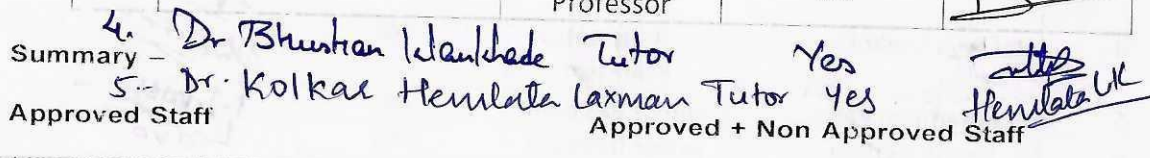 Professor
4. Dr Bhushan Wankhade Tutor Yes
Summary –
5.. Dr. Kolkar Hemlata Laxman Tutor yes Hemlata LK
Approved Staff Approved + Non Approved Staff